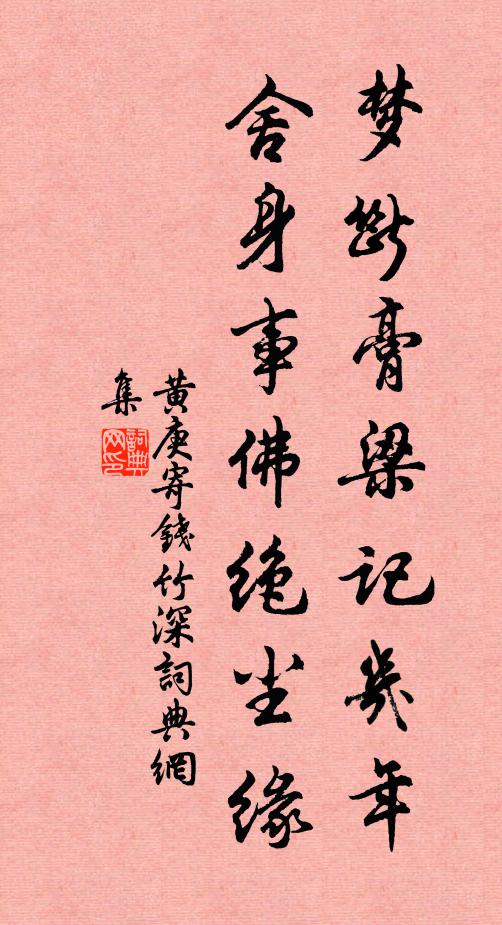 梦断膏粱记几年
舍身事佛绝尘缘
黄庚寄錢竹深詞典網
集
詞典
网印